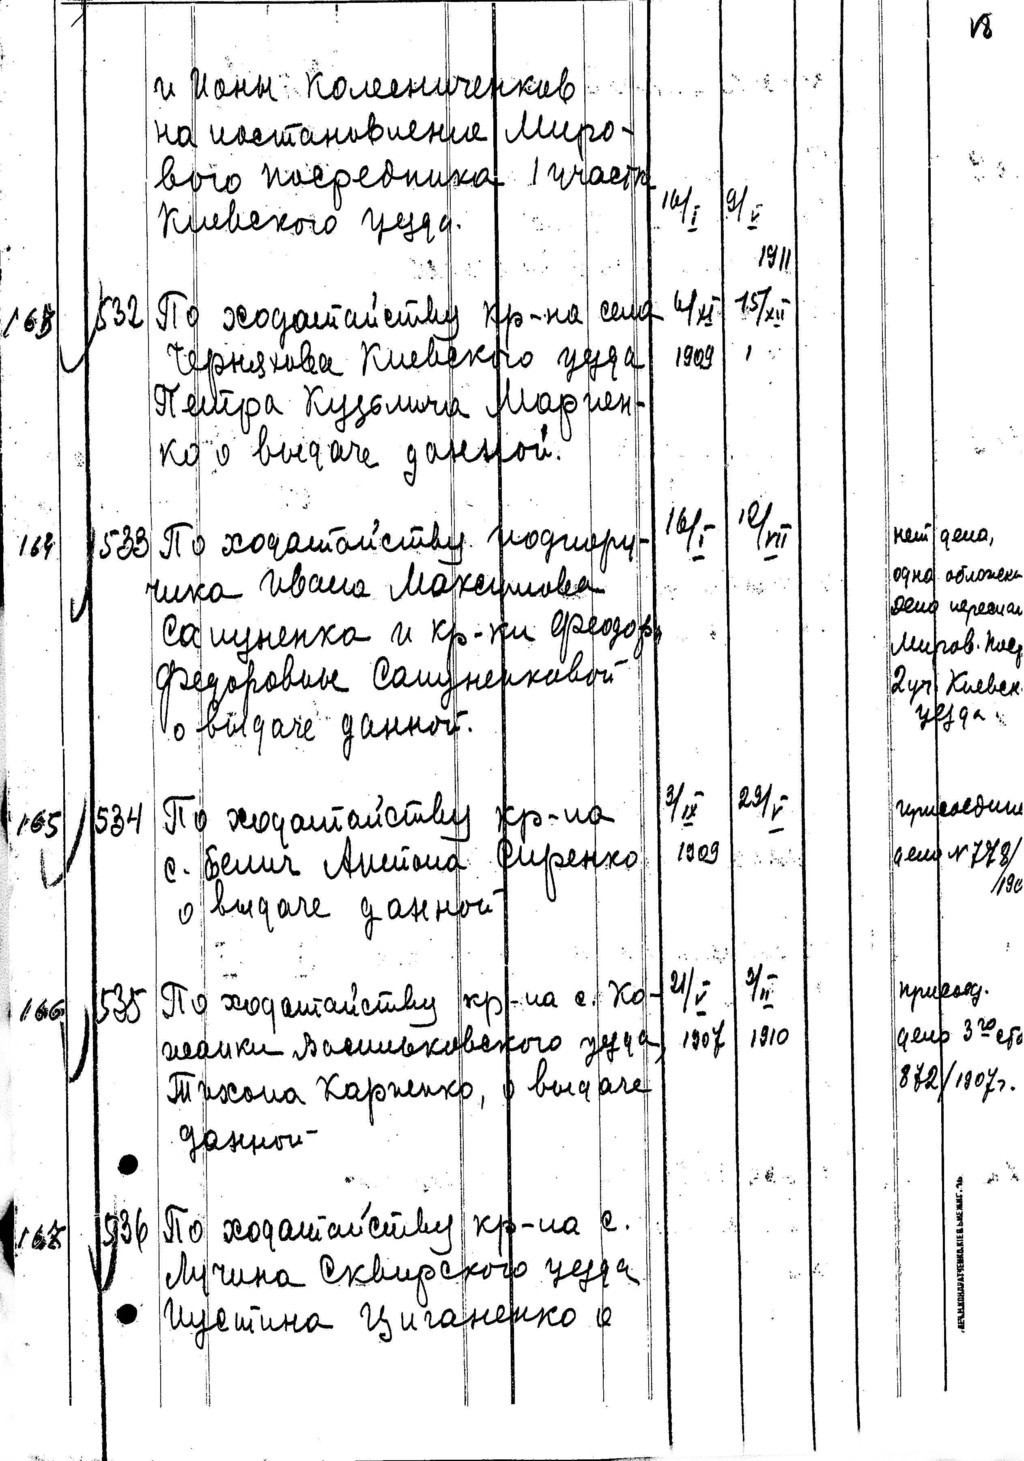 и Ионы Колесниченков
на постановление Миро-
вого посредника 1 участк
Киевского уезда.
16/I 9/V
1911
163 532 По ходатайству кр-на села 4/XI 15/XII
Черняхова Киевского уезда 1909
Петра Кузьмича Мариен-
ко о выдаче данной.
164 533 По ходатайству подпору- 16/I 10/VII нет дела,
чика Ивана Максимова одна обложка
Сапуненка и кр-ки Феодоры дело переслан
Федоровны Сапуненковой Миров. Поср
о выдаче данной. 2 уч. Киевск.
уезда.
165 534 По ходатайству кр-на 3/IX 29/V присоедине
с. Белич Антона Сиренко 1909 дело N 778/
о выдаче данной 190
166 535 По ходатайству кр-на с. Ко- 21/V 3/II присоед.
жанки Васильковского уезда, 1907 1910 дело 3го сто
Тихона Карпенко, о выдаче 872/1907г.
данной
167 536 По ходатайству кр-на с.
Лучина Сквирского уезда
Иустина Циганенко о